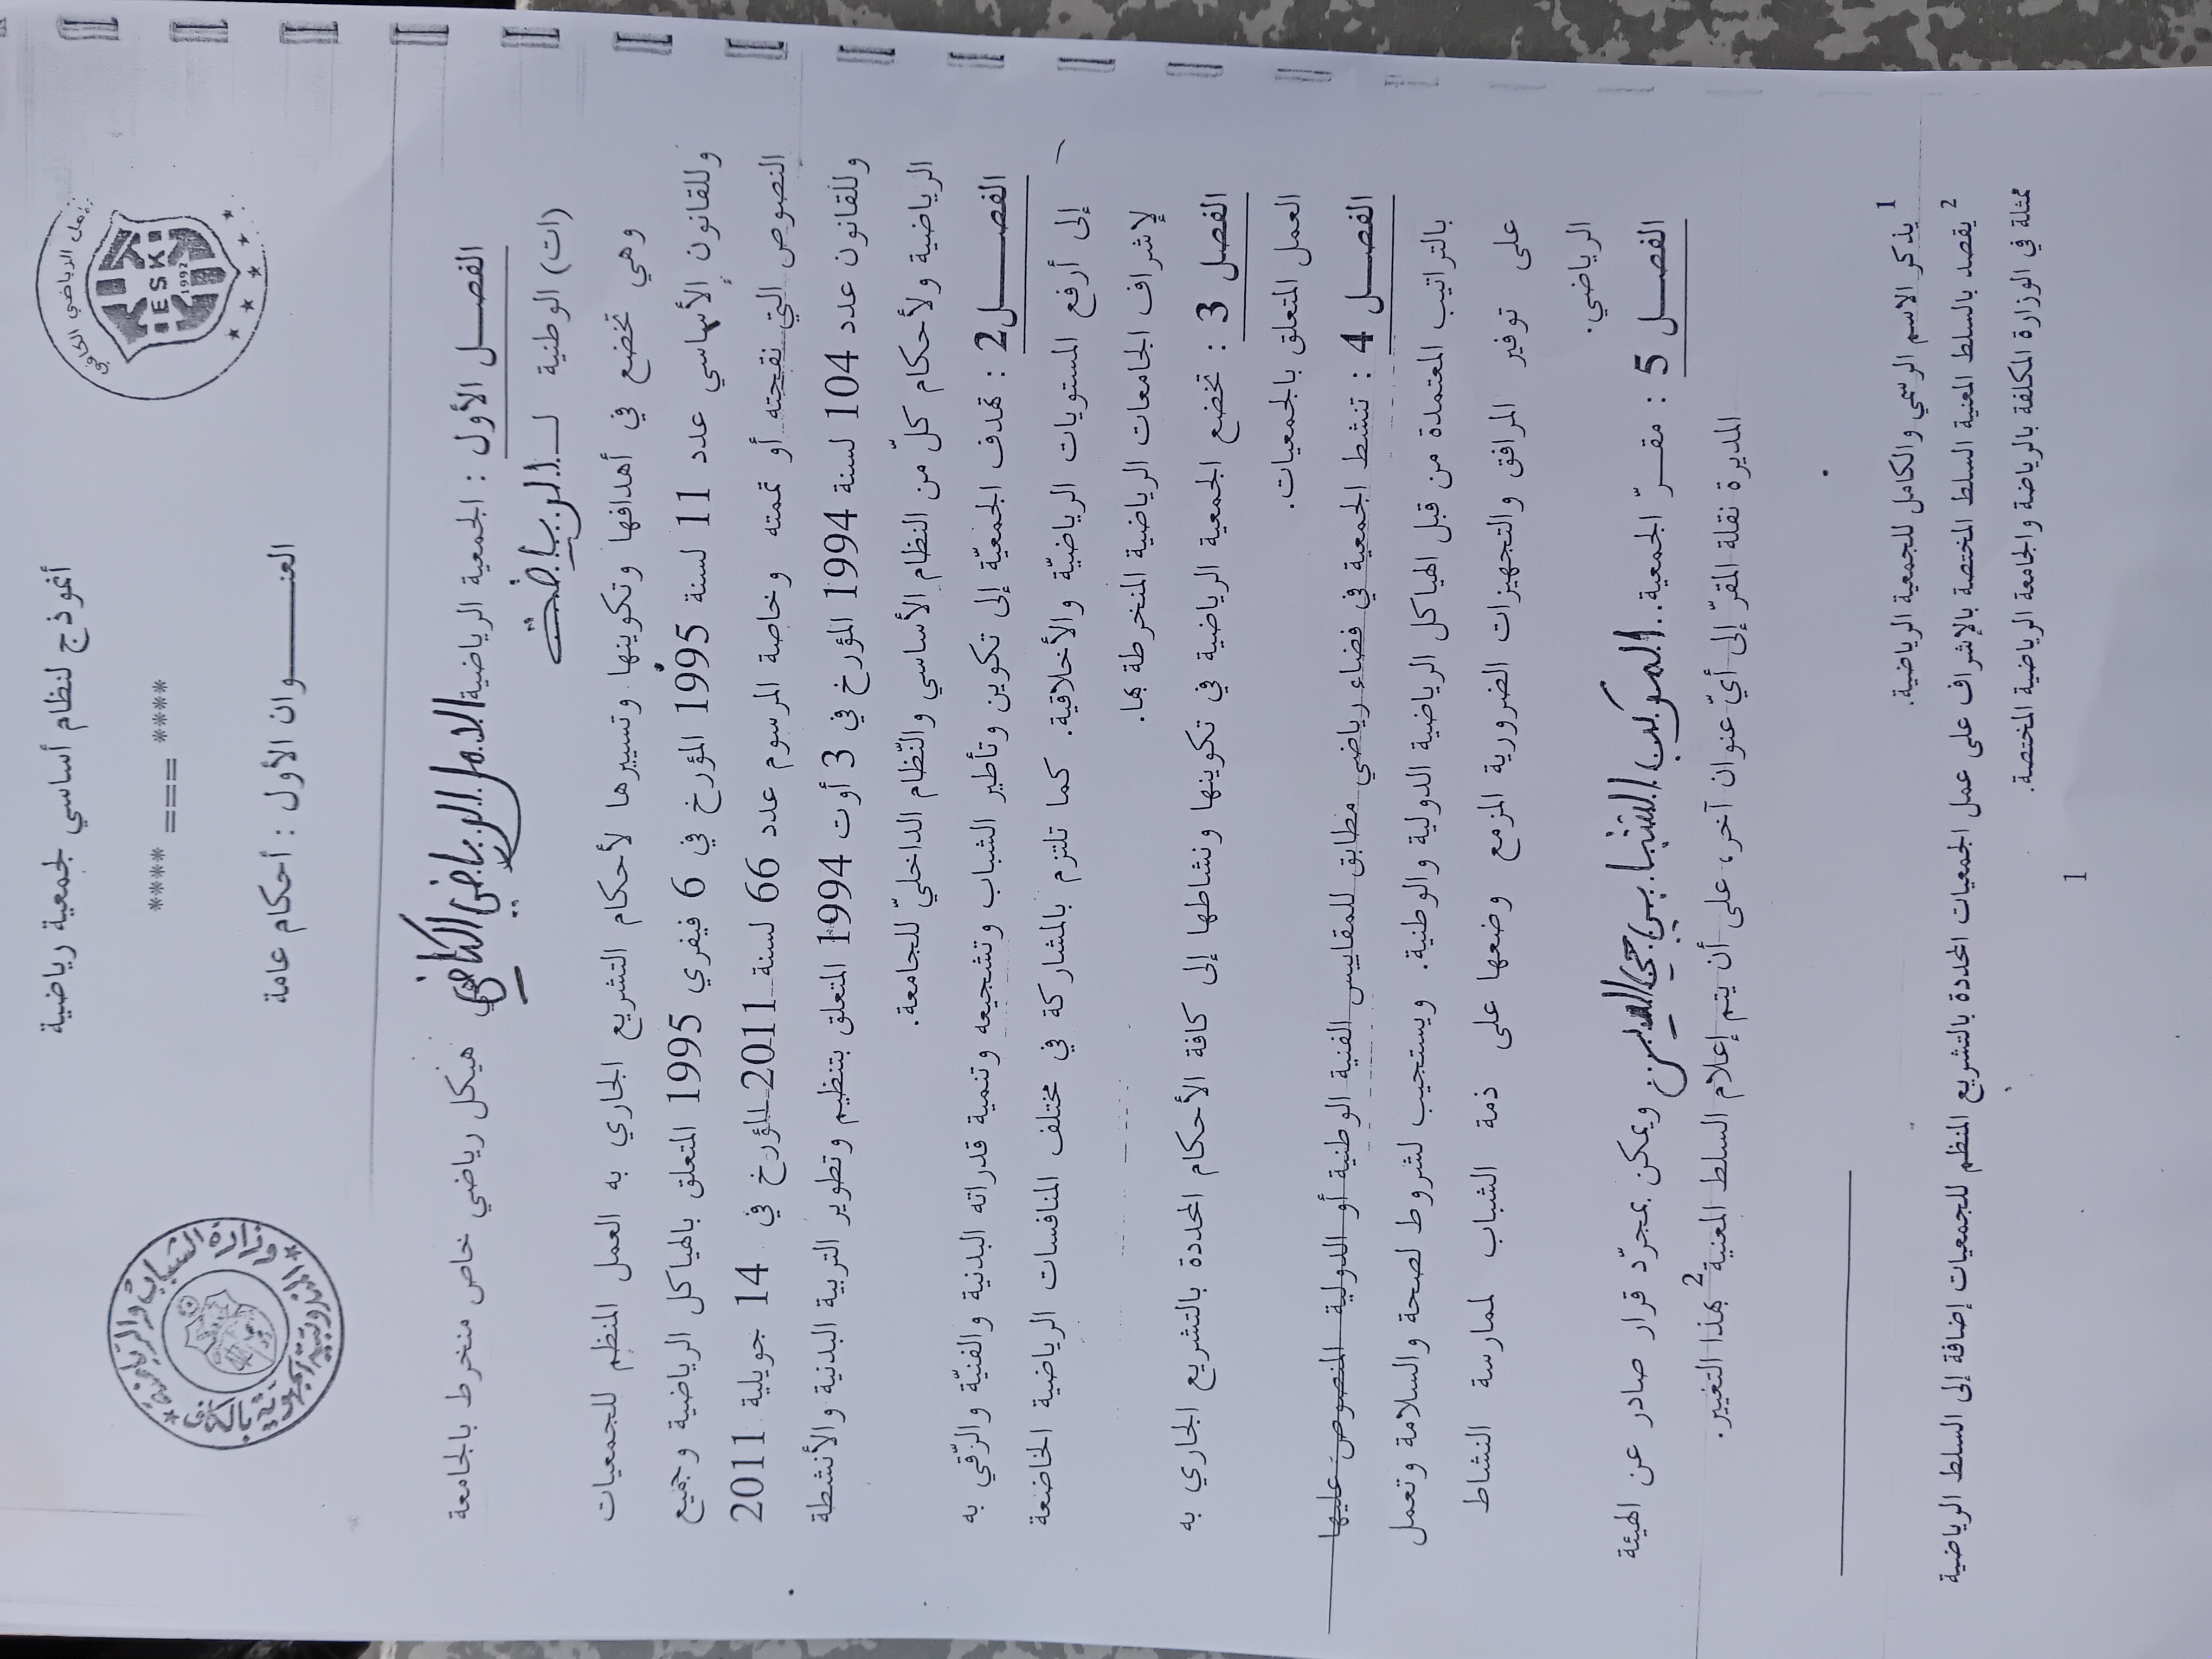 أنموذج لنظام أساسي لجمعية رياضية
**** === ****
العنـــــوان الأول : أحكام عامة
ESK
1992
الفصـــل الأول : الجمعية الرياضية الأمل الرياضي الكافي هيكل رياضي خاص منخرط بالجامعة
(ات) الوطنية لـ الرياضة
وهي تخضع في أهدافها وتكوينها وتسييرها لأحكام التشريع الجاري به العمل المنظم للجمعيات
وللقانون الأساسي عدد 11 لسنة 1995 المؤرخ في 6 فيفري 1995 المتعلق بالهياكل الرياضية وجميع
النصوص التي نقحته أو تممته وخاصة المرسوم عدد 66 لسنة 2011 المؤرخ في 14 جويلية 2011
وللقانون عدد 104 لسنة 1994 المؤرخ في 3 أوت 1994 المتعلق بتنظيم وتطوير التربية البدنية والأنشطة
الرياضية ولأحكام كلّ من النظام الأساسي والنّظام الداخليّ للجامعة.
الفصـــل2 : تهدف الجمعيّة إلى تكوين وتأطير الشباب وتشجيعه وتنمية قدراته البدنية والفنيّة والرّقي به
إلى أرفع المستويات الرياضيّة والأخلاقية. كما تلتزم بالمشاركة في مختلف المنافسات الرياضية الخاضعة
لإشراف الجامعات الرياضية المنخرطة بها.
الفصل 3 : تخضع الجمعية الرياضية في تكوينها ونشاطها إلى كافة الأحكام المحددة بالتشريع الجاري به
العمل المتعلق بالجمعيات.
الفصـــل 4 : تنشط الجمعية في فضاء رياضي مطابق للمقاييس الفنية الوطنية أو الدولية المنصوص عليها
بالتراتيب المعتمدة من قبل الهياكل الرياضية الدولية والوطنية. ويستجيب لشروط لصحة والسلامة وتعمل
على توفير المرافق والتجهيزات الضرورية المزمع وضعها على ذمة الشباب لممارسة النشاط
الرياضي.
الفصـــل 5 : مقـــرّ الجمعية..المركب الشبابي حي الدير ويمكن بمجرّد قرار صادر عن الهيئة
المديرة نقلة المقرّ إلى أيّ عنوان آخر، على أن يتم إعلام السلط المعنية2 بهذا التغيير.
1 يذكر الاسم الرسمي والكامل للجمعية الرياضية.
2 يقصد بالسلط المعنية السلط المختصة بالإشراف على عمل الجمعيات المحددة بالتشريع المنظم للجمعيات إضافة إلى السلط الرياضية
ممثلة في الوزارة المكلفة بالرياضة والجامعة الرياضية المختصة.
1